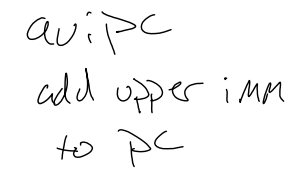 auipc
add upper imm
to pc